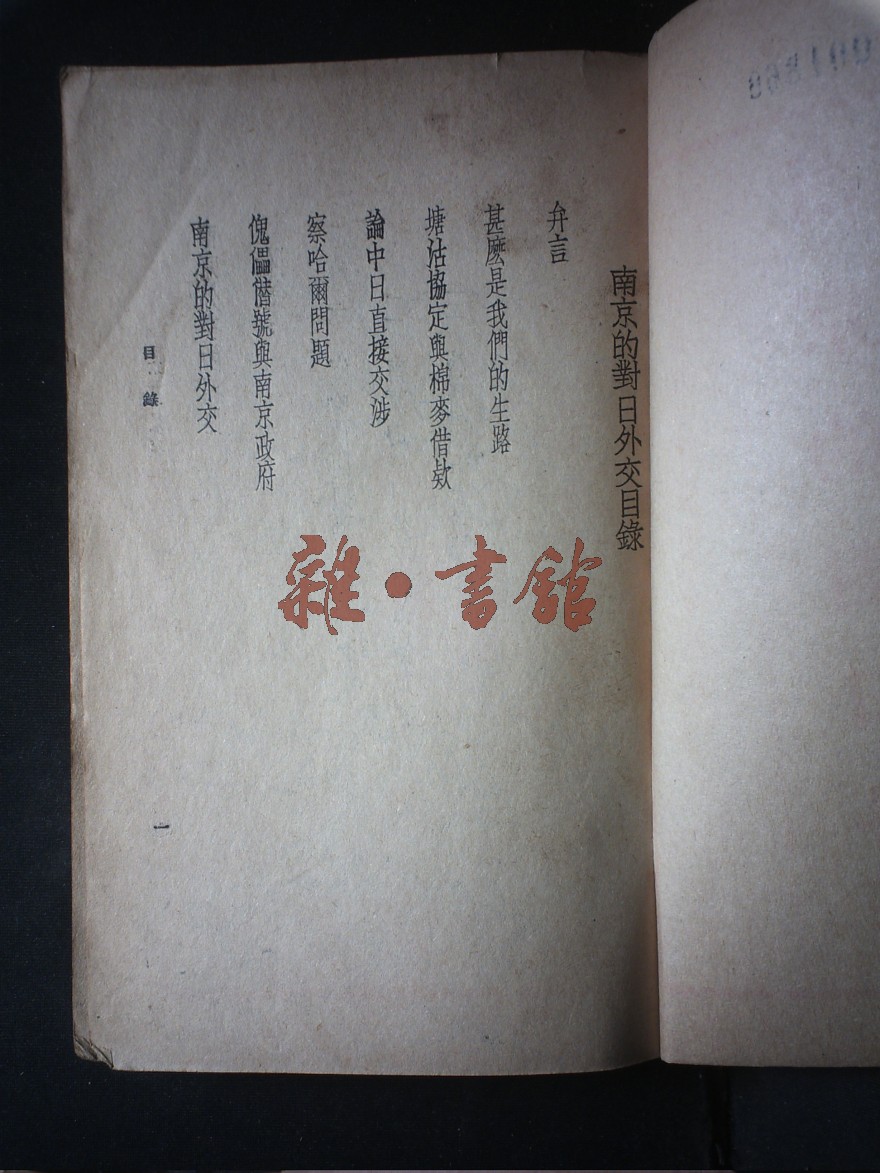 南京的對日外交目錄
弁言
甚麽是我們的生路
塘沽協定與棉麥借欵
論中日直接交涉
察哈爾問題
傀儡僭號與南京政府
南京的對日外交
目錄
一
雜・書館